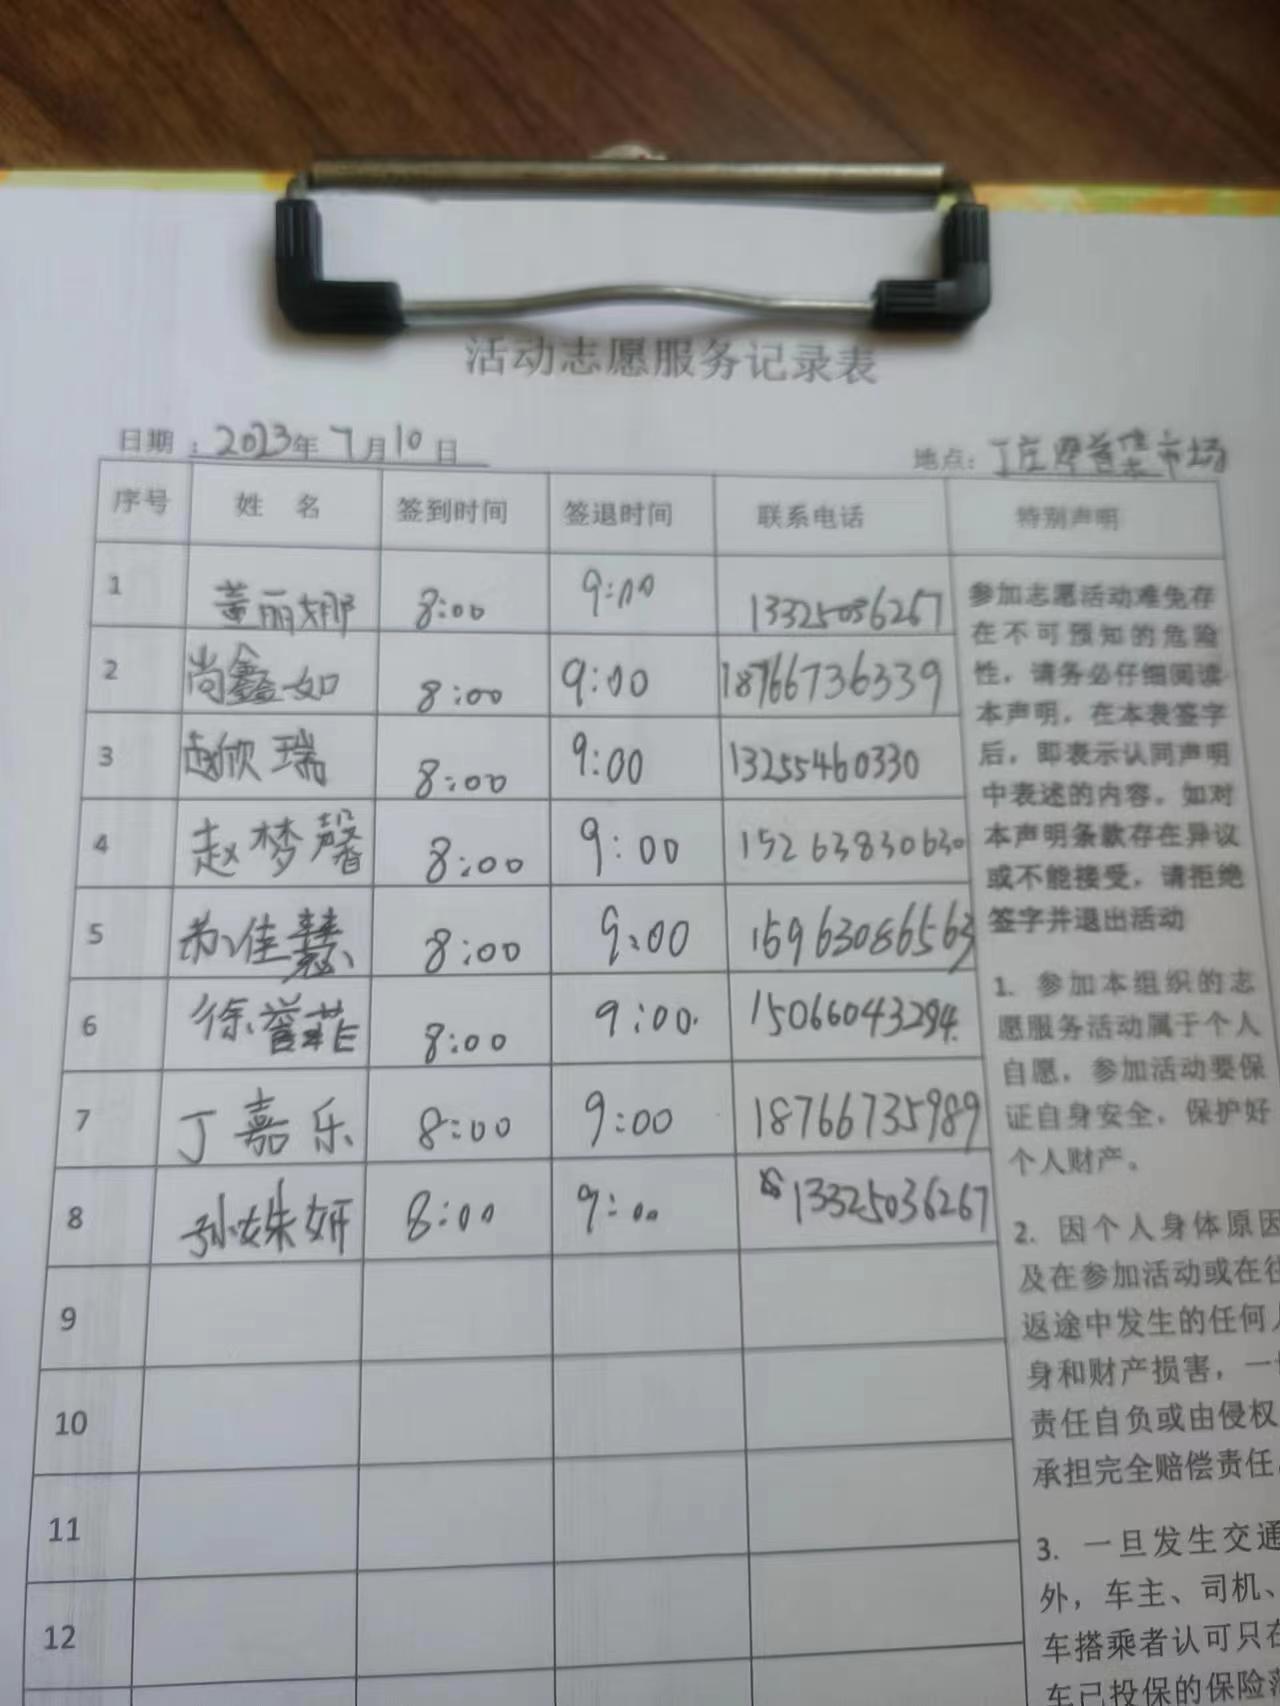 活动志愿服务记录表
日期：2023年7月10日 地点：丁庄
序号 姓 名 签到时间 签退时间 联系电话 特别声明
1 董丽娜 8:00 9:00 13325036267
2 尚鑫如 8:00 9:00 18766736339
3 赵欣瑞 8:00 9:00 13255460330
4 赵梦馨 8:00 9:00 15263830630
5 苏佳慧 8:00 9:00 15963086563
6 徐誉菲 8:00 9:00 15066043294
7 丁嘉乐 8:00 9:00 18766735989
8 孙姝妍 8:00 9:00 13325036267
9
10
11
12
参加志愿活动难免存
在不可预知的危险
性，请务必仔细阅读
本声明，在本表签字
后，即表示认同声明
中表述的内容。如对
本声明条款存在异议
或不能接受，请拒绝
签字并退出活动
1. 参加本组织的志
愿服务活动属于个人
自愿，参加活动要保
证自身安全，保护好
个人财产。
2. 因个人身体原因
及在参加活动或在往
返途中发生的任何人
身和财产损害，一
责任自负或由侵权
承担完全赔偿责任
3. 一旦发生交通
外，车主、司机、
车搭乘者认可只在
车已投保的保险